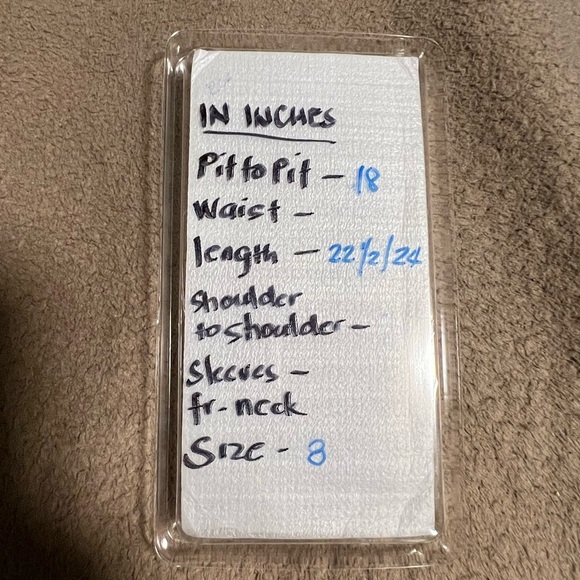 IN INCHES
Pit to Pit - 18
Waist -
length - 22 1/2/24
shoulder
to shoulder -
Sleeves -
fr-neck
SIZE - 8